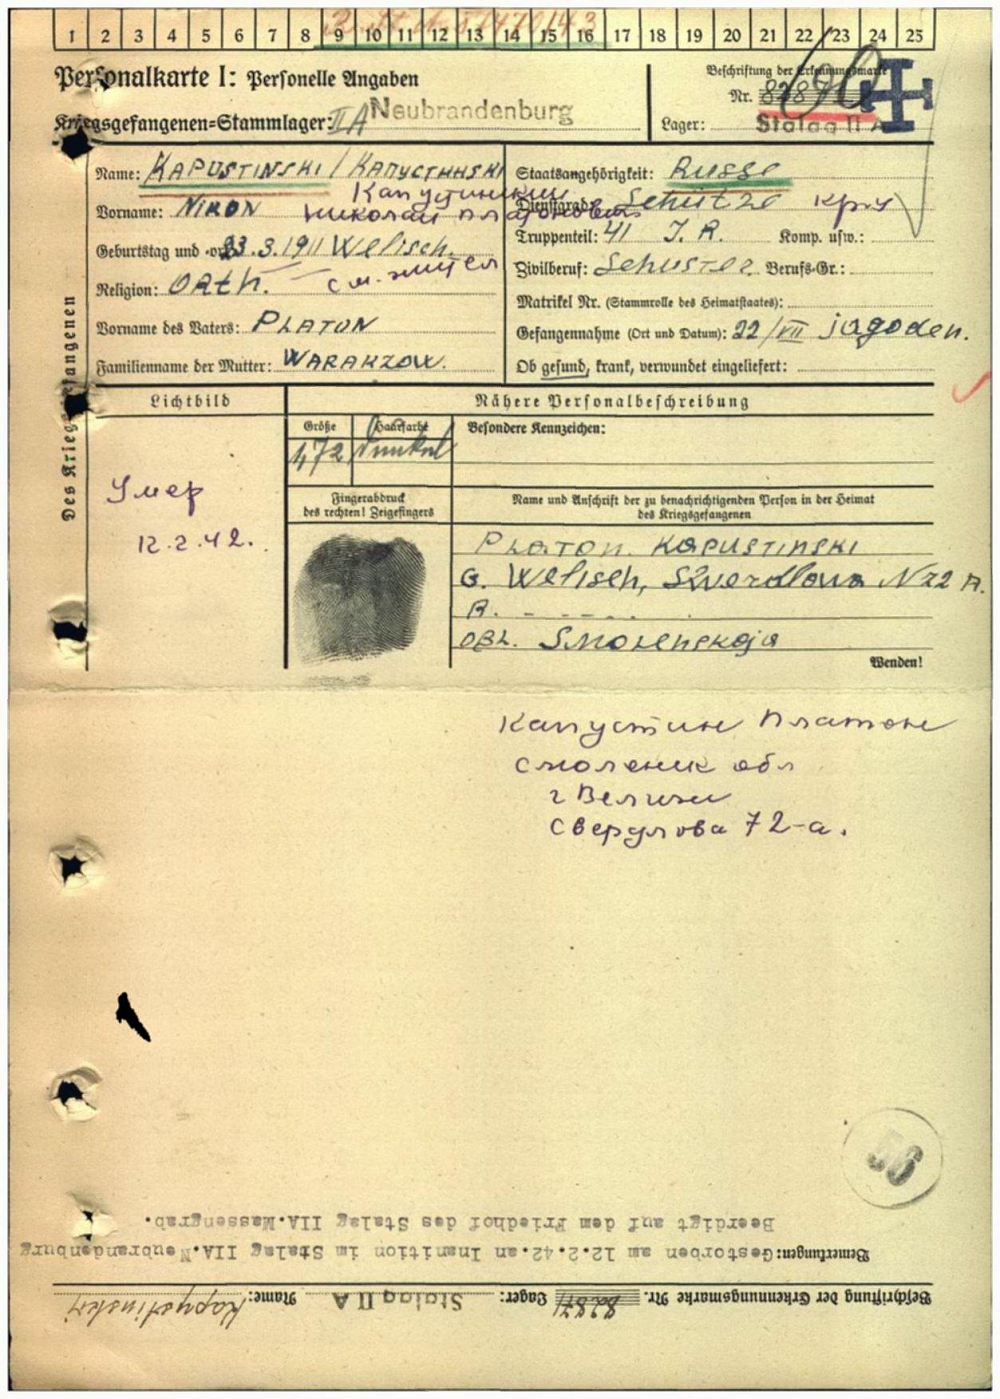 1 2 3 4 5 6 7 8 9 10 11 12 13 14 15 16 17 18 19 20 21 22 23 24 25
Personalkarte I: Personelle Angaben
Kriegsgefangenen-Stammlager: II A Neubrandenburg
Beschriftung der Erkennungsmarke
Nr.
Lager: Stalag II A
Des Kriegsgefangenen
Name: KAPUSTINSKI /
Капустинский
Vorname: NIKON Николай Платонович
Geburtstag und -ort 23.3.1911 Welisch.
Religion: ORTH. см. жител
Vorname des Vaters: PLATON
Familienname der Mutter: WARAKZOW.
Staatsangehörigkeit: Russe
Dienstgrad: Schütze кр-ц
Truppenteil: 41 J. R. Komp. usw.:
Zivilberuf: Schuster Berufs-Gr.:
Matrikel Nr. (Stammrolle des Heimatstaates):
Gefangennahme (Ort und Datum): 22/VII jagoden.
Ob gesund, krank, verwundet eingeliefert:
Lichtbild
Умер
12.2.42.
Nähere Personalbeschreibung
Größe Haarfarbe Besondere Kennzeichen:
1,72 Dunkel
Fingerabdruck
des rechten! Zeigefingers
Name und Anschrift der zu benachrichtigenden Person in der Heimat
des Kriegsgefangenen
PLATON KAPUSTINSKI
G. Welisch, Swerdlowa N 72 A.
R.
OBL. Smolenskaja
Wenden!
Капустин Платон
Смоленск обл
г Велиж
Свердлова 72-а.
56
Beschriftung der Erkennungsmarke Nr. 82871 Lager: Stalag II A Name: Kapustinski
Bemerkungen: Gestorben am 12.2.42.an Inanition im Stalag IIA.Neubrandenburg
Beerdigt auf dem Friedhof des Stalag IIA.Massengrab.